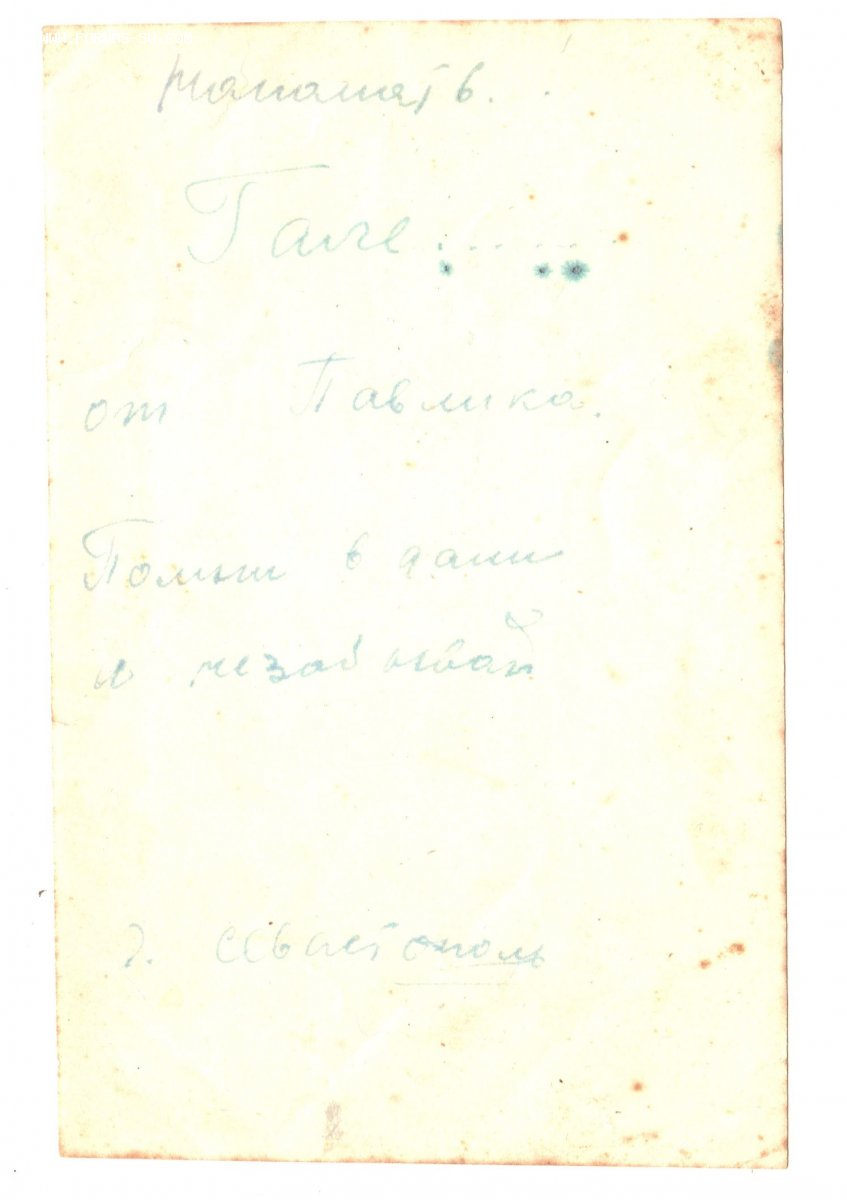 Напамять.
Гале.......
от Павлика.
Помни в дали
и незабывай
г. Севастополь